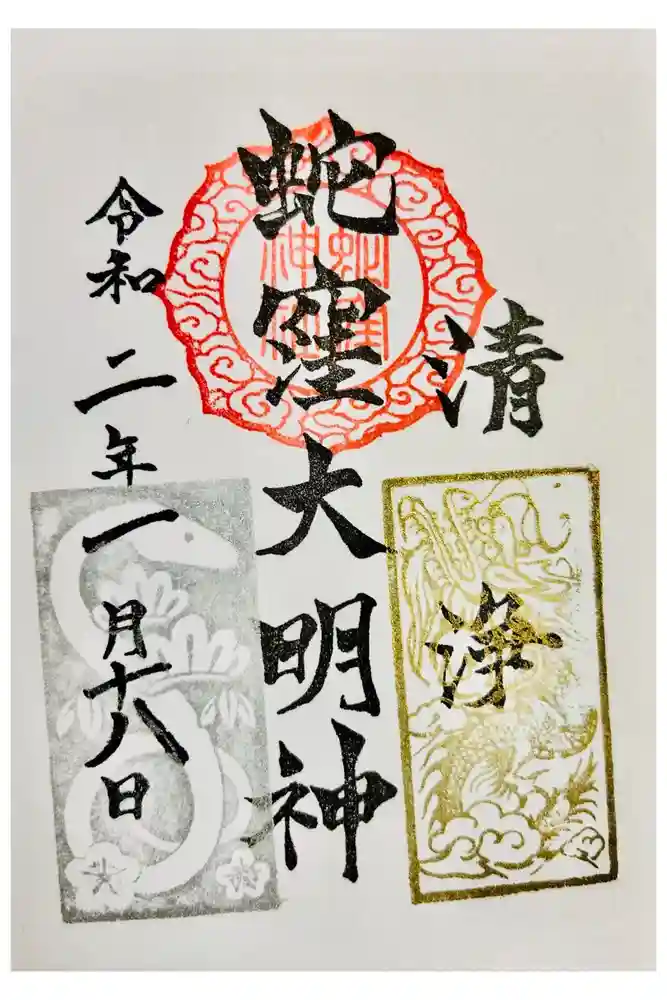 清浄
蛇窪大明神
蛇窪神社
令和二年一月十八日